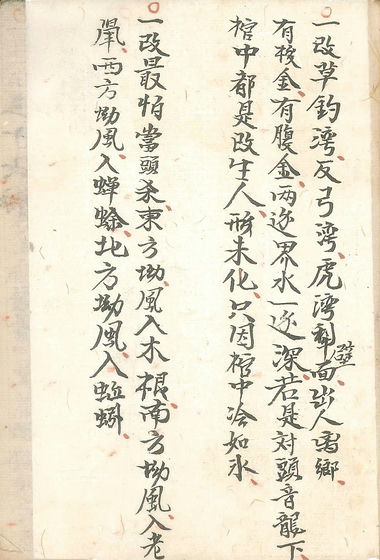 一改草釣灣反弓灣虎灣斜面出人离鄉
有棱金有腹金两边界水一边深若是対頭音龍下
棺中都是改生人形未化只因棺中冷如水
一改最怕當頭杀東方坳風入木根南方坳風入老
鼠西方坳風入蟬蜍北方坳風入蚯蚓